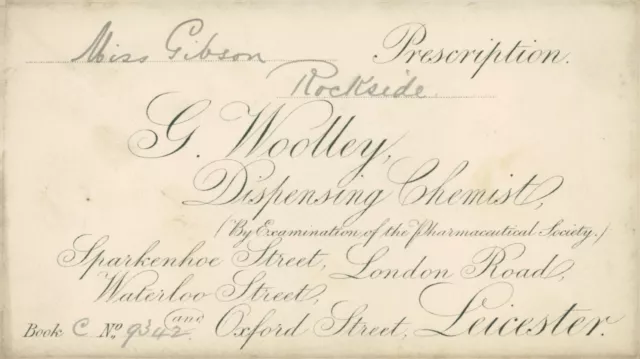 Miss Gibson Prescription.
Rockside
G. Woolley,
Dispensing Chemist,
(By Examination of the Pharmaceutical Society.)
Sparkenhoe Street, London Road,
Waterloo Street,
and
Book C No. 9342. Oxford Street, Leicester.